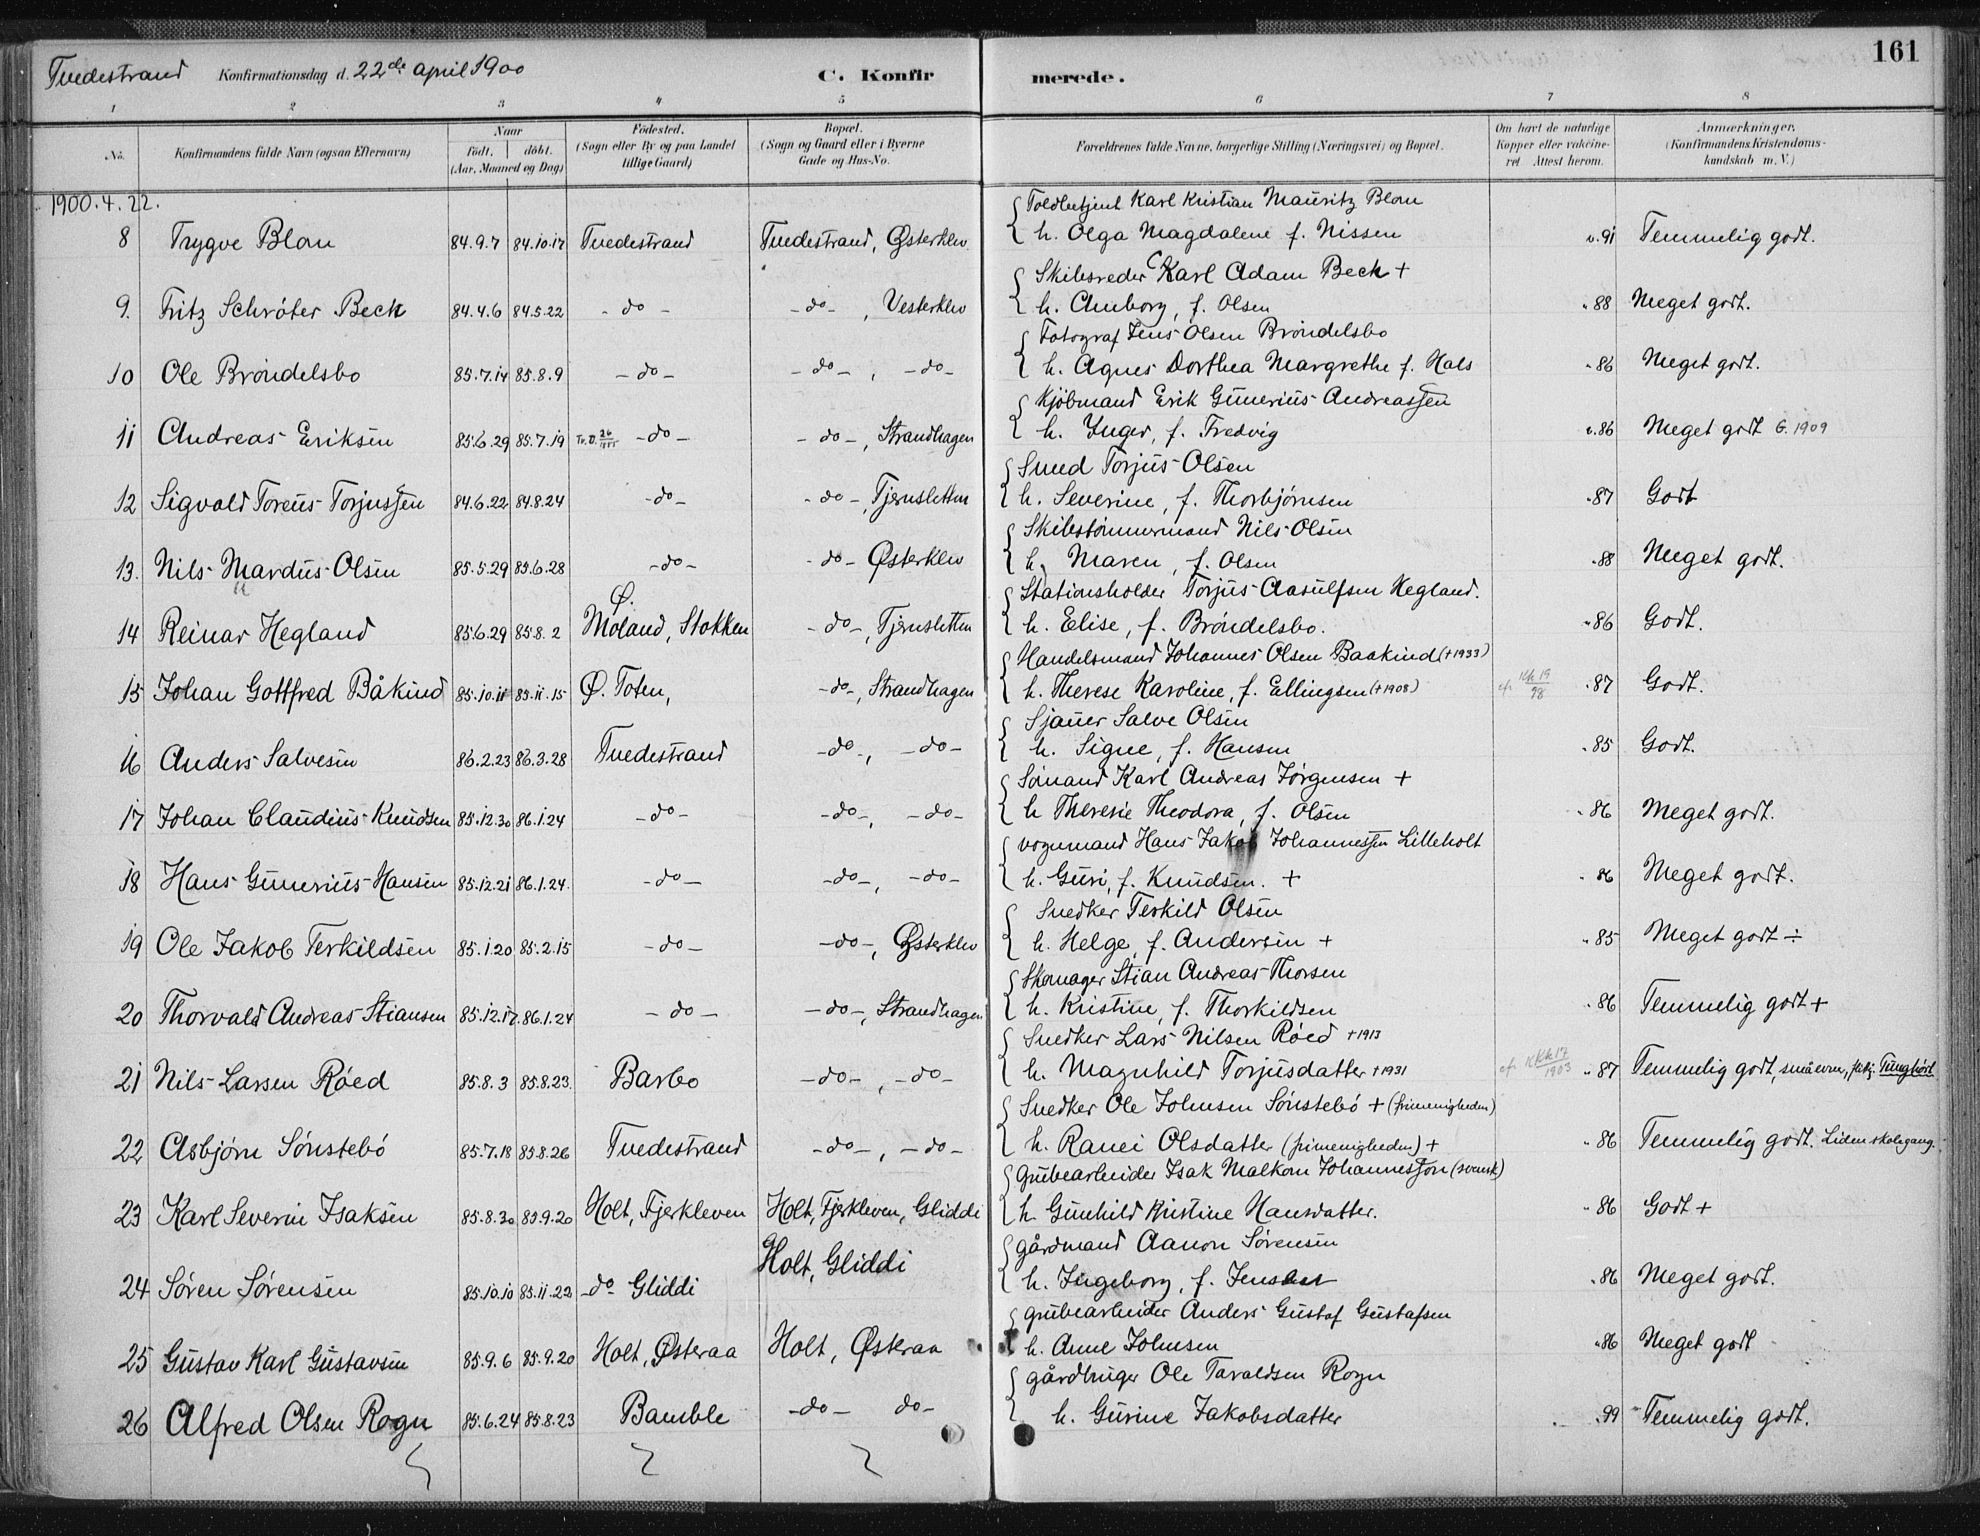 Tvedestrand Konfirmationsdag d. 22de april 1900 C. Konfirmerede. 161
1 2 3 4 5 6 7 8
No. Konfirmandens fulde Navn (ogsaa Efternavn) Naar født. døbt. (Aar, Maaned og Dag) Fødested. (Sogn eller By og paa Landet tillige Gaard) Bopæl. (Sogn og Gaard eller i Byerne Gade og Hus-No. Forældrenes fulde Navne, borgerlige Stilling (Næringsvei) og Bopæl. Om havt de naturlige Kopper eller vakcineret. Attest herom. Anmærkninger. (Konfirmandens Kristendomskundskab m. V.)
1900.4.22.
Toldbetjent Karl Kristian Mauritz Blom
8 Trygve Blom 84.9.7 84.10.17 Tvedestrand Tvedestrand, Østerklev h. Olga Magdalene f. Nissen v.91 Temmelig godt.
Skibsreder Karl Adam Beck +
9. Fritz Schröter Beck 84.4.6 84.5.22 - do - - do -, Vesterklev h. Amborg, f. Olsen 88 Meget godt.
Fotograf Jens Olsen Bröndelsbo
10 Ole Bröndelsbo 85.7.14 85.8.9 - do - - do -, - do - h. Agnes Dorthea Margrethe f. Hals 86 Meget godt.
Kjöbmand Erik Gunerius Andreassen
11 Andreas Eriksen 85.6.29 85.7.19 - do - - do -, Strandhagen h. Inger, f. Fredvig v.86 Meget godt G. 1909
Smed Torjus Olsen
12 Sigvald Toreus Torjussen 84.6.22 84.8.24 - do - - do -, Tjernsletten h. Severine, f. Thorbjørnsen 87 Godt
Skibstömmermand Nils Olsen
13. Nils Mardus Olsen 85.5.29 85.6.28 - do - - do - Østerklev h. Maren, f. Olsen 88 Meget godt.
Stationsholder Torjus Aasulfsen Hegland.
14 Reinar Hegland 85.6.29 85.8.2 Ø. Moland, Stokken - do -, Tjernsletten h. Elise, f. Bröndelsbo. 86 Godt.
Handelsmand Johannes Olsen Baakind (+1933)
15 Johan Gottfred Båkind 85.10.11 85.11.15 Ø. Toten, - do -, Strandhagen h. Therese Karoline, f. Ellingsen (+1908) 87 Godt.
Sjauer Salve Olsen
16 Anders Salvesen 86.2.23 86.3.28 Tvedestrand - do -, - do - h. Signe, f. Hansen 85 Godt.
Sömand Karl Andreas Jørgensen +
17 Johan Claudius Knudsen 85.12.30 86.1.24 - do - - do -, - do - h Theresie Theodora, f. Olsen 86 Meget godt.
Vognmand Hans Jakob Johannessen Lilleholt
18 Hans Gunerius Hansen 85.12.21 86.1.24. - do - - do -, - do - h. Guri, f. Knudsen. + 86 Meget godt.
Snedker Terkild Olsen
19 Ole Jakob Terkildsen 85.1.20 85.2.15 - do - - do -, Østerklev h. Helge, f. Andersen + 85 Meget godt ÷
Skomager Stian Andreas Thorsen
20 Thorvald Andreas Stiansen 85.12.17. 86.1.24 - do - - do -, Strandhagen h. Kristine, f. Thorkildsen 86 Temmelig godt +
Snedker Lars Nilsen Röed +1913
21 Nils Larsen Röed 85.8.3 85.8.23. Barbo - do -, - do - h. Magnhild Torjusdatter +1931 87 Temmelig godt, små evner, Tunghört
Snedker Ole Johnsen Sönstebö + (frimenigheden)
22 Asbjörn Sönstebö 85.7.18 85.8.26 Tvedestrand - do -, - do - h. Ranei Olsdatter (frimenigheden) + 86 Temmelig godt. Liden skolegang.
Grubearbeider Isak Malkom Johannesson (svensk)
23 Karl Severin Isaksen 85.8.30 85.9.20 Holt, Fjerkleven Holt, Fjerkleven, Gliddi h Gunhild Kristine Hansdatter. 86 Godt +
gårdmand Aanon Sörensen
24 Sören Sörensen 85.10.10 85.11.22 do Gliddi Holt, Gliddi h. Ingeborg, f. 86 Meget godt.
grubearbeider Anders Gustaf Gustafsen
25 Gustav Karl Gustavsen 85.9.6 85.9.20 Holt, Østeraa Holt, Østeraa h. Anne Johnsen 86 Meget godt
gårdbruger Ole Taraldsen Rogn
26 Alfred Olsen Rogn 85.6.24 85.8.23 Bamble - do - do - h. Gurine Jakobsdatter 99 Temmelig godt.